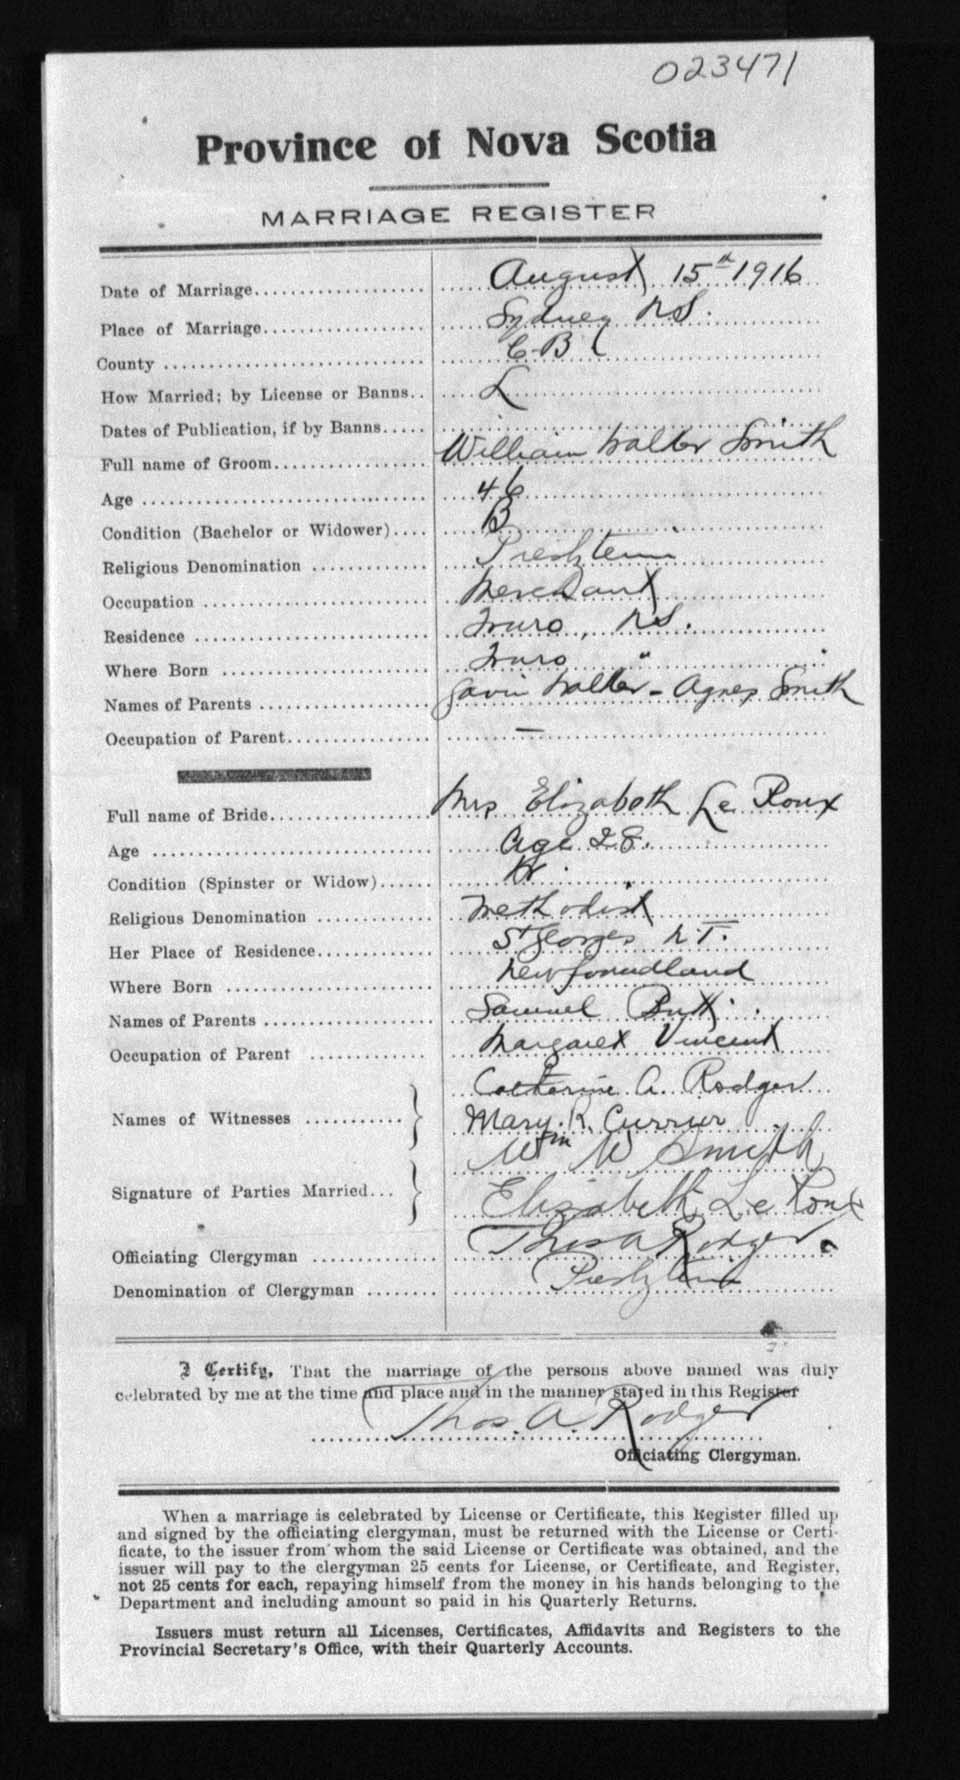 023471
Province of Nova Scotia
MARRIAGE REGISTER
Date of Marriage.................... August 15th 1916
Place of Marriage................... Sydney NS.
County ........................... C B
How Married; by License or Banns.. L
Dates of Publication, if by Banns.....
Full name of Groom................. William Walter Smith
Age ................................. 46
Condition (Bachelor or Widower).... B
Religious Denomination ............. Presbyterin
Occupation .......................... Merchant
Residence ........................... Truro, NS.
Where Born ........................ Truro "
Names of Parents ................... Gavin Walker - Agnes Smith
Occupation of Parent................ —
Full name of Bride.................. Mrs Elizabeth Le Roux
Age ................................. Age 28.
Condition (Spinster or Widow)...... W.
Religious Denomination ............. Methodist
Her Place of Residence............. St Georges
Where Born ........................ Newfoundland
Names of Parents ................... Samuel Butt.
Occupation of Parent .............. Margaret Vincent
Catherine A. Rodger
Names of Witnesses ............ }
Mary. R. Currier
Wm W Smith
Signature of Parties Married... }
Elizabeth Le Roux
Officiating Clergyman .............. Thos A Rodger.
Denomination of Clergyman ........ Presbyterin
I Certify, That the marriage of the persons above named was duly
celebrated by me at the time and place and in the manner stated in this Register
Thos. A. Rodger
Officiating Clergyman.
When a marriage is celebrated by License or Certificate, this Register filled up
and signed by the officiating clergyman, must be returned with the License or Certi-
ficate, to the issuer from whom the said License or Certificate was obtained, and the
issuer will pay to the clergyman 25 cents for License, or Certificate, and Register,
not 25 cents for each, repaying himself from the money in his hands belonging to the
Department and including amount so paid in his Quarterly Returns.
Issuers must return all Licenses, Certificates, Affidavits and Registers to the
Provincial Secretary's Office, with their Quarterly Accounts.